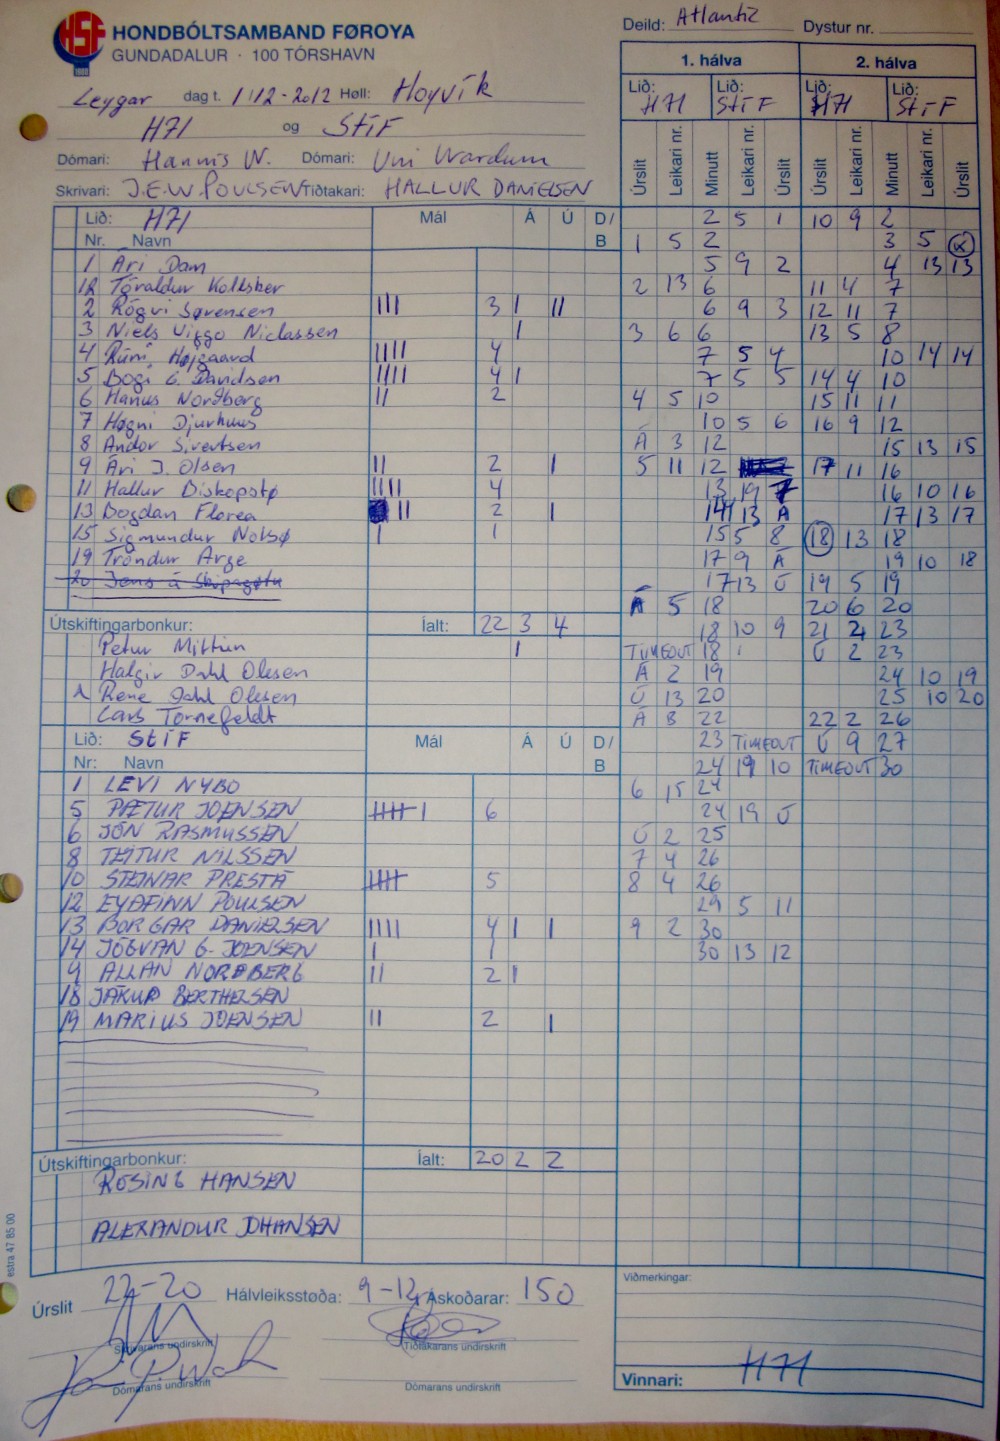 HSF HONDBÓLTSAMBAND FØROYA
GUNDADALUR · 100 TÓRSHAVN
Deild: Atlantic Dystur nr.
Leygar dag t. 1/12-2012 Høll: Hoyvík
H71 og StÍF
Dómari: Hannis W. Dómari: Uni Wardum
Skrivari: J.E.W POULSEN Tíðtakari: HALLUR DANIELSEN
1. hálva 2. hálva
Lið: H71 Lið: StÍF Lið: H71 Lið: StÍF
Úrslit Leikari nr. Minutt Leikari nr. Úrslit Úrslit Leikari nr. Minutt Leikari nr. Úrslit
Lið: H71 Mál Á Ú D/B
Nr. Navn
1 Ári Dam
12 Tóraldur Kollsker
2 Rógvi Sørensen IIII 3 I II
3 Niels Viggo Niclassen I
4 Rúni Højgaard IIII 4
5 Bogi G. Davidsen IIII 4 I
6 Hanus Nordberg II 2
7 Høgni Djurhuus
8 Andor Sivertsen
9 Ári J. Olsen II 2 I
11 Hallur Biskopstø IIII 4
13 Bogdan Florea II 2 I
15 Sigmundur Nolsø I 1
19 Tróndur Arge
20 Jens á Skipagøtu
Útskiftingarbonkur: Íalt: 22 3 4
Petur Mittún I
Halgir Dahl Olesen
Rene Dahl Olesen
Lars Tornefeldt
Lið: StÍF Mál Á Ú D/B
Nr: Navn
1 LEVI NYBO
5 PÆTUR JOENSEN IIIII I 6
6 JÓN RASMUSSEN
8 TEITUR NILSSEN
10 STEINAR PRESTÁ IIIII 5
12 EYÐFINN POULSEN
13 BORGAR DANIELSEN IIII 4 I I
14 JÓGVAN G. JOENSEN I 1
9 ALLAN NORÐBERG II 2 I
18 JÁKUP BERTHELSEN
19 MARIUS JOENSEN II 2 I
Útskiftingarbonkur: Íalt: 20 2 2
RÓSING HANSEN
ALEXANDUR JOHANSEN
2 5 1 10 9 2
1 5 2 3 5
5 9 2 4 13 13
2 13 6 11 4 7
6 9 3 12 11 7
3 6 6 13 5 8
7 5 4 10 14 14
7 5 5 14 4 10
4 5 10 15 11 11
10 5 6 16 9 12
Á 3 12 15 13 15
5 11 12 17 11 16
13 19 7 16 10 16
14 13 Á 17 13 17
15 5 8 18 13 18
17 9 Á 19 10 18
17 13 Ú 19 5 19
Á 5 18 20 6 20
18 10 9 21 2 23
TIMEOUT 18 Ú 2 23
Á 2 19 24 10 19
Ú 13 20 25 10 20
Á B 22 22 2 26
23 TIMEOUT Ú 9 27
24 19 10 TIMEOUT 30
6 15 24
24 19 Ú
Ú 2 25
7 4 26
8 4 26
29 5 11
9 2 30
30 13 12
Úrslit 22-20 Hálvleiksstøða: 9-12 Áskoðarar: 150
Skrivarans undirskrift Tíðtakarans undirskrift
Dómarans undirskrift Dómarans undirskrift
Viðmerkingar:
Vinnari: H71
estra 47 85 00